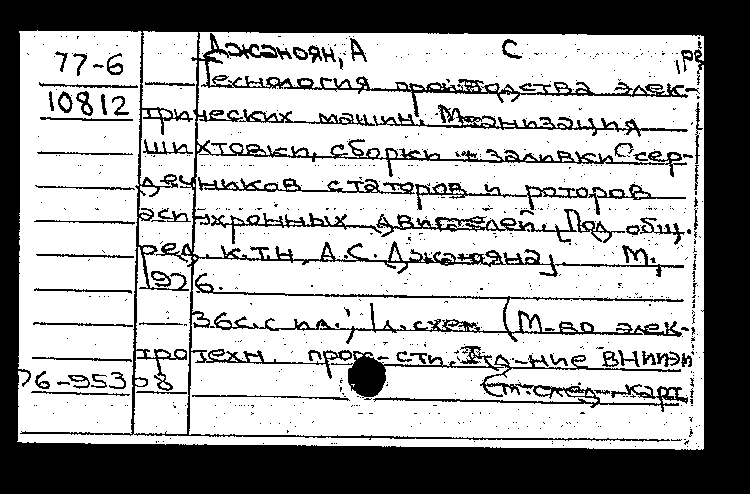 Джаноян, А С
77-6 Технология производства элек-
10812 трических машин. Механизация
шихтовки, сборки и заливки сер-
дечников статоров и роторов
асинхронных двигателей. [Под общ.
ред. к.т.н. А.С. Джанояна]. М.,
1976.
36с. с ил.; 1л. схем (М-во элек-
тротехн. пром-сти. Отд-ние ВНИИЭМ
76-95308 См. след. карт